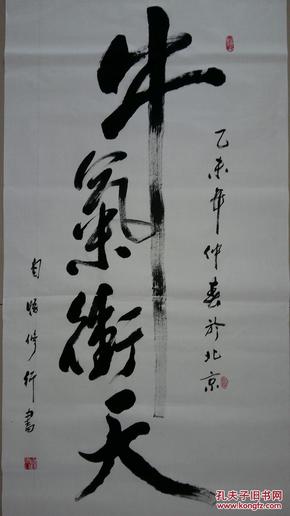 牛氣衝天
乙未年仲春於北京
修行書
孔夫子旧书网
www.kongfz.com